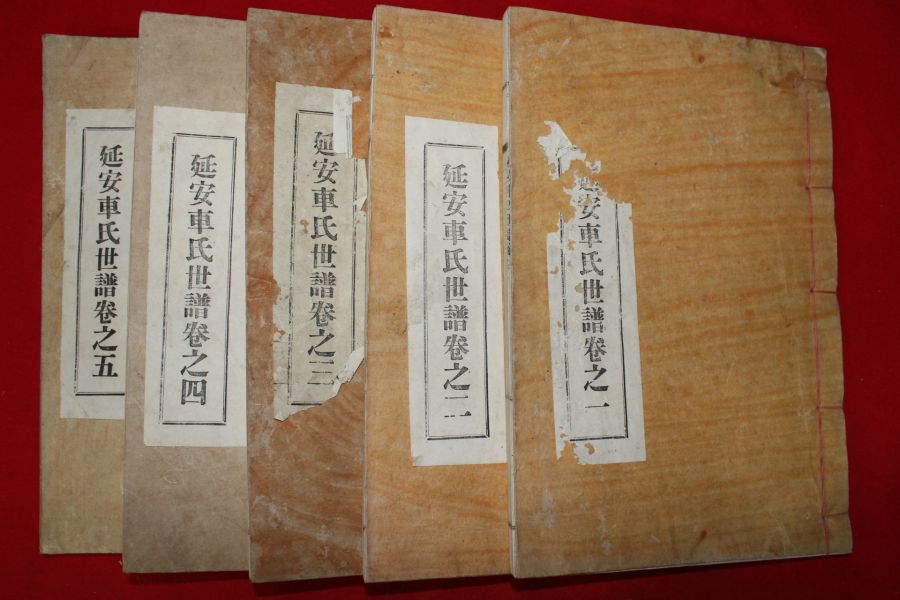 延安車氏世譜卷之一
延安車氏世譜卷之二
延安車氏世譜卷之三
延安車氏世譜卷之四
延安車氏世譜卷之五